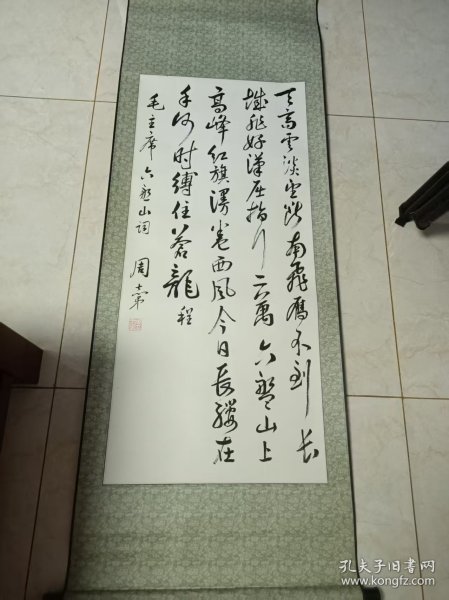 天高云淡望断南飛雁不到长
城非好漢屈指行二萬六盤山上
高峰红旗漫卷西风今日長缨在
手何时缚住苍龍 程
毛主席六盤山词 周士第
孔夫子旧书网
www.kongfz.com